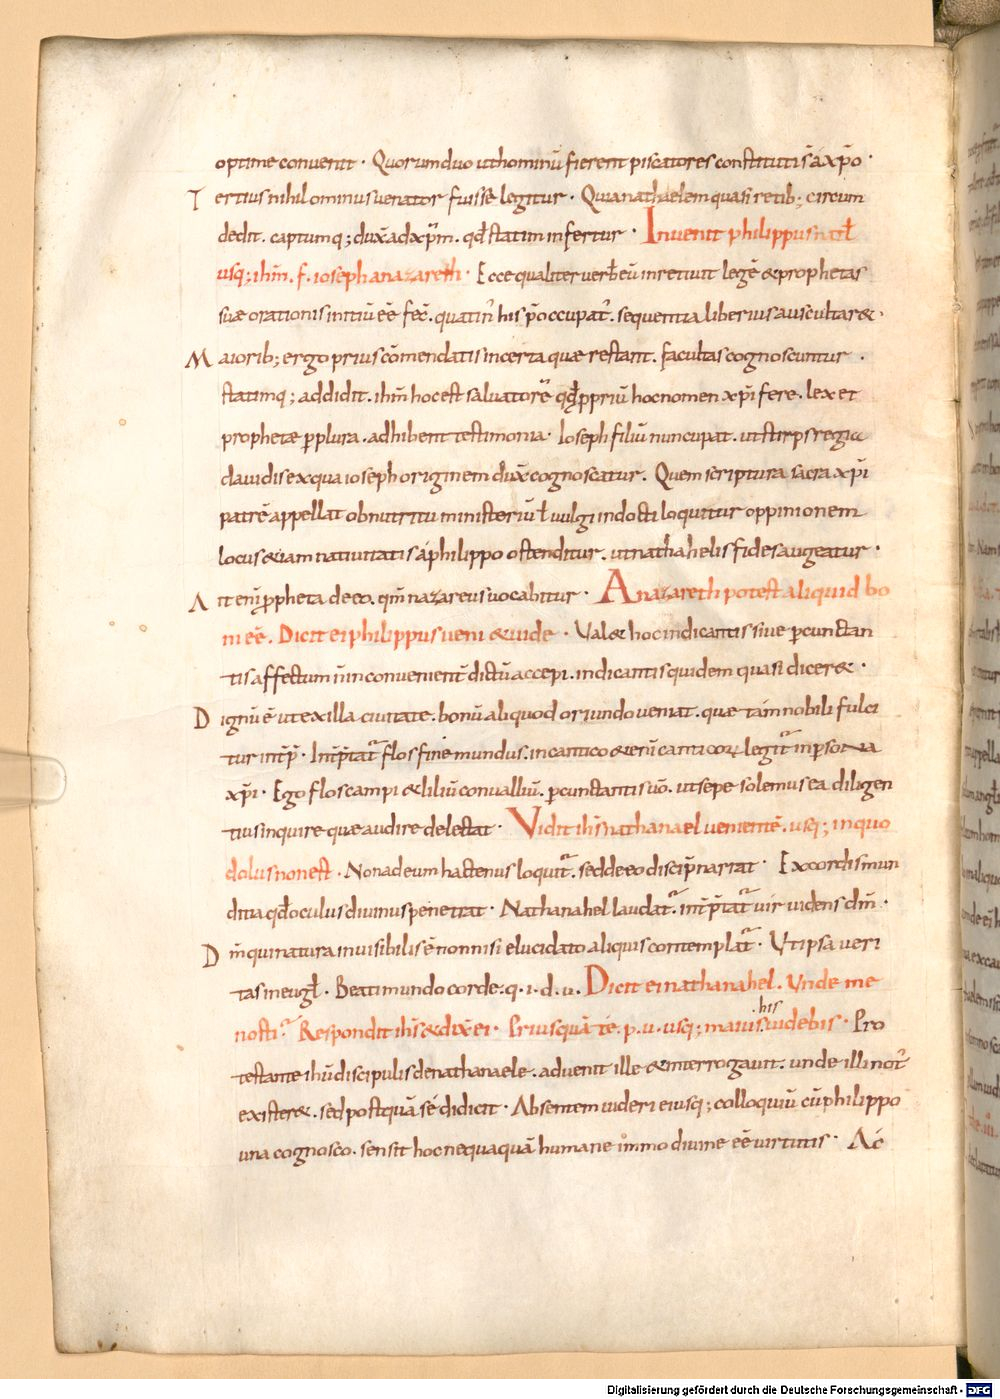 optime convenit · Quorum duo ut hominū fierent piscatores constituti s̄ a xp̄o ·
Tertius nihilominus venator fuisse legitur · Quia nathaelem quasi retib; circum
dedit. captumq; dux̄ ad xp̄m. qd̄ statim infertur · Invenit philippus nath̄l
usq; ihm̄. f. ioseph a nazareth · Ecce qualiter verbēū in retivit legē & prophetas
suæ orationis initiū ēē fec̄. quatin᷒ his p̄occupat᷒. sequentia liberius auscultar&·
Maiorib; ergo prius cōmendatis incerta quæ restant. facultas cognoscuntur .
statimq; addidit. ihm̄ hoc est salvatorē qd̄ ppriū hoc nomen xp̄i fere. lex et
prophetæ p̱plura. adhibent testimonia · Ioseph filiū nuncupat. ut stirps regia
dauidis ex qua ioseph originem dux̄ cognoscatur. Quem scriptura sacra xp̄i
patrē appellat ob nutritu ministeriū ł vulgi indocti loquitur oppinionem
locus &iam nativitatis a philippo ostenditur. ut nathahelis fides augeatur ·
Ait enī ppheta de eo. qm̄ nazareus vocabitur · A nazareth potest aliquid bo
ni ēē. Dicit ei philippus veni & uide · Val& hoc indicantis siue p̱cunctan
tis affectum n̄ inconvenient̄ dictū accepi. indicantis quidem quasi dicer& ·
Dignū ē ut ex illa civitate. bonū aliquod oriundo veniat. quæ tām nobili fulci
tur int̄p̄. Int̄p̄tat᷒ flos sine mundus. in cantico &enī canticoꝝ legit᷒ in persona
xp̄i · Ego flos campi & liliū convalliū. p̱cunctantis ūo. ut sepe solemus ea diligen
tius inquire quæ audire delectat · Vidit ihs̄ nathanael venientē. usq; in quo
dolus non est · Non ad eum hactenus loquit᷒. sed de eo discip̄ narrat · Ex cordis mun
ditia qd̄ oculus divinus penetrat · Nathanahel laudat᷒. int̄p̄tat᷒ vir videns dm̄ ·
Dm̄ qui natura invisibilis ē non nisi elucidato aliquis contemplat᷒ · Ut ipsa veri
tas in eugł. Beati mundo corde. q. i. d. u. Dicit ei nathanahel. Unde me
nosti? Respondit ihs̄ & dix̄ ei · Priusquā te. p. u. usq; maius .his videbis · Pro
testante ihū discipulis de nathanaele. advenit ille & interrogavit. unde illi not᷒
exister&. sed postquā sē didicit · Absentem uideri eiusq; colloquiū cū philippo
una cognosco. sensit hoc nequaquā humane immo divine ēē virtutis · Ac
Digitalisierung gefördert durch die Deutsche Forschungsgemeinschaft - DFG